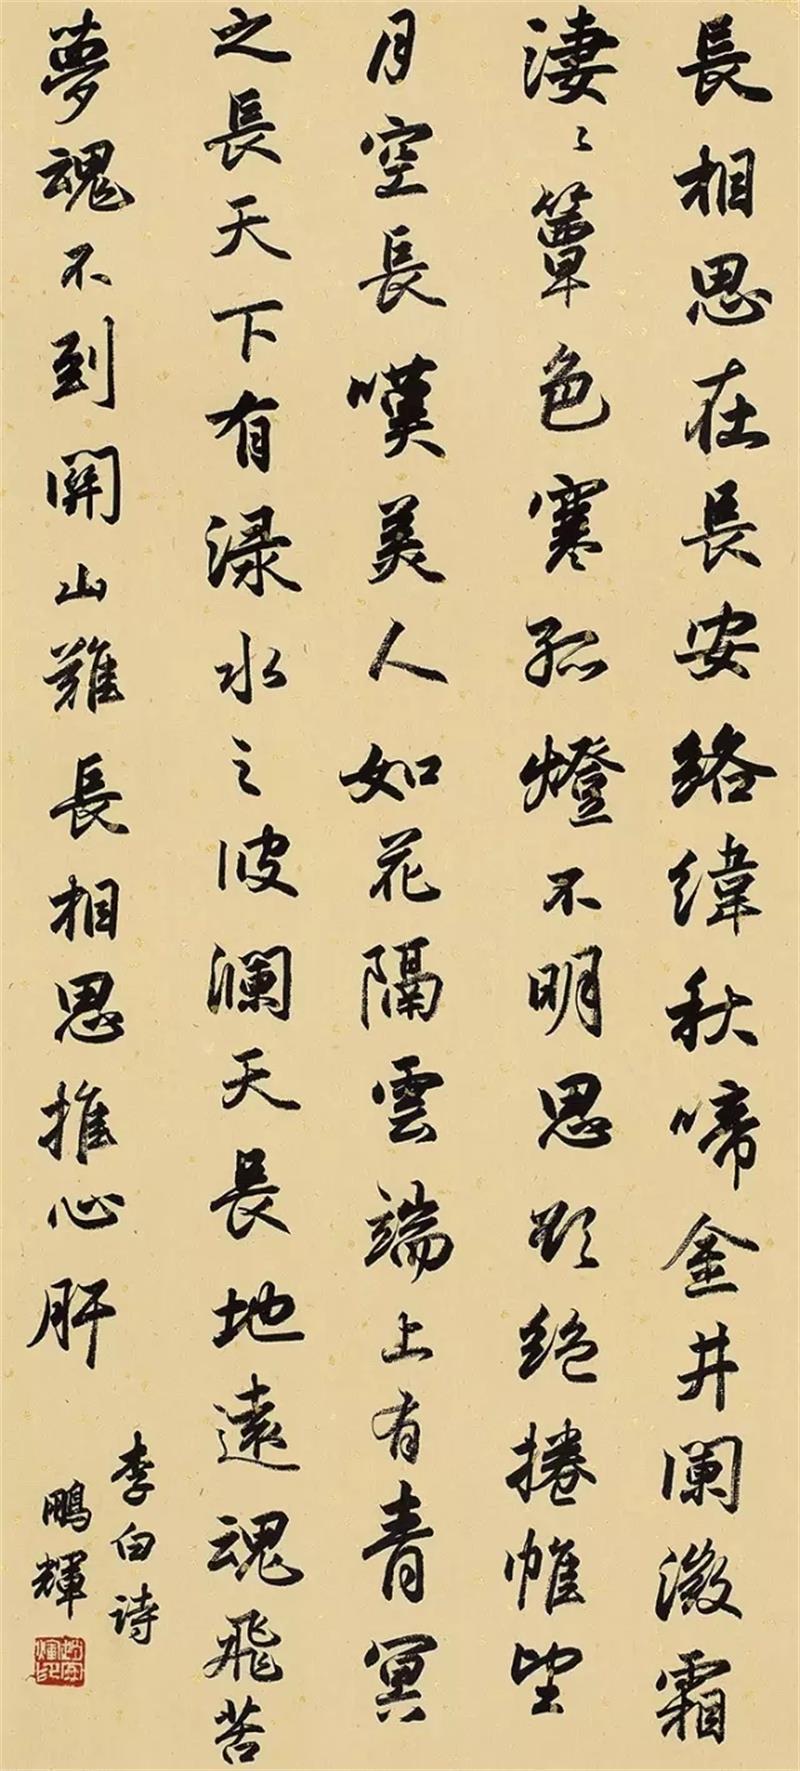 長相思在長安絡緯秋啼金井闌微霜
淒〻簟色寒孤燈不明思欲絕捲帷望
月空長嘆美人如花隔雲端上有青冥
之長天下有淥水之波瀾天長地遠魂飛苦
夢魂不到關山難長相思摧心肝
李白詩
鵬輝